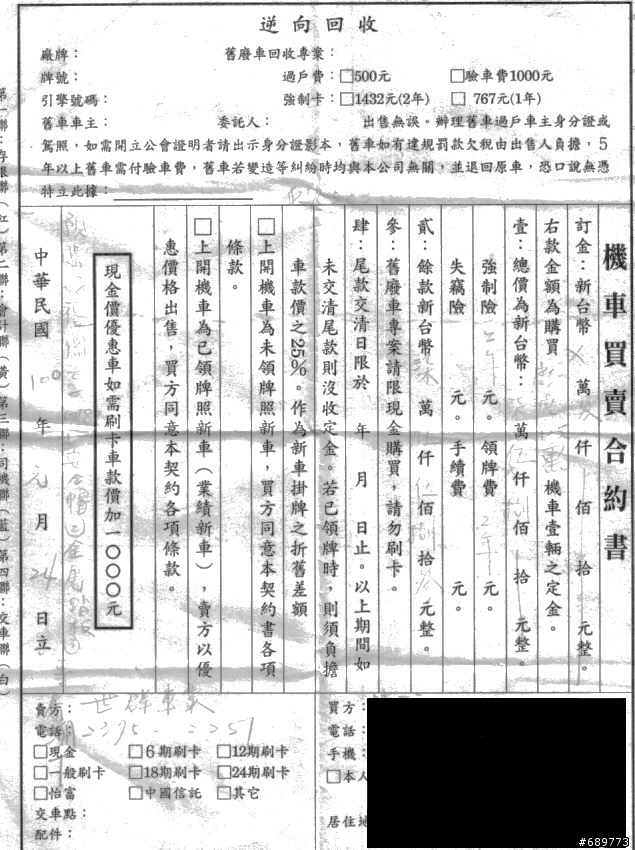 逆向回收
廠牌： 舊廢車回收專案：
牌號： 過戶費：□500元 □驗車費1000元
引擎號碼： 強制卡：□1432元(2年) □ 767元(1年)
舊車車主： 委託人： 出售無誤。辦理舊車過戶車主身分證或
駕照，如需開立公會證明者請出示身分證影本，舊車如有違規罰款欠稅由出售人負擔，5
年以上舊車需付驗車費，舊車若變造等糾紛時均與本公司無關，並退回原車，恐口說無憑
特立此據：
機車買賣合約書
訂金：新台幣 萬 仟 佰 拾 元整。
右款金額為購買 機車壹輛之定金。
壹：總價為新台幣： 萬 仟 佰 拾 元整。
強制險 元。領牌費 元。
失竊險 元。手續費 元。
貳：餘款新台幣 萬 仟 佰 拾 元整。
參：舊廢車專案請限現金購買，請勿刷卡。
肆：尾款交清日限於 年 月 日止。以上期間如
未交清尾款則沒收定金。若已領牌時，則須負擔
車款價之25%。作為新車掛牌之折舊差額
□上開機車為未領牌照新車，買方同意本契約書各項
條款。
□上開機車為已領牌照新車（業績新車），賣方以優
惠價格出售，買方同意本契約各項條款。
現金價優惠車如需刷卡車款價加一〇〇〇元
中華民國 100 年 元 月 24 日立
第一聯：存根聯（紅）第二聯：會計聯（黃）第三聯：司機聯（藍）第四聯：交車聯（白）
賣方：
電話： 2395-2257
□現金 □6期刷卡 □12期刷卡
□一般刷卡 □18期刷卡 □24期刷卡
□怡富 □中國信託 □其它
交車點：
配件：
買方：
電話：
手機：
□本人
居住地
#689773